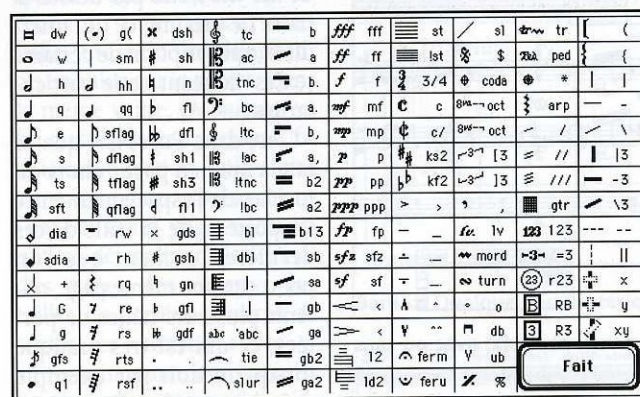 dw g( dsh tc b fff fff st sl tr tr [ (
w sm sh ac a ff ff !st $ ped ped { {
h hh n tnc b. f f 3/4 3/4 coda * | |
q qq fl bc a. mf mf c c 8va oct arp — -
e sflag dfl !tc b, mp mp c/ 8va oct / \
s dflag sh1 !ac a, p p ks2 3 ]3 // |3
ts tflag sh3 !tnc b2 pp pp kf2 3 ]3 /// -3
sft qflag fl1 !bc a2 ppp ppp > > , , gtr \3
dia rw gds b1 b13 fp fp – _ lv 123 123 --- --
sdia rh gsh db1 sb sfz sfz mord -3- =3 ||
+ rq gn |. sa sf sf turn 23 r23 x
G re gfl .| gb < ʌ ° o B RB y
g rs gdf abc 'abc ga < ^^ db 3 R3 xy
gfs rts . . tie gb2 12 ferm V ub
q1 rsf .. .. slur ga2 1d2 feru %
Fait